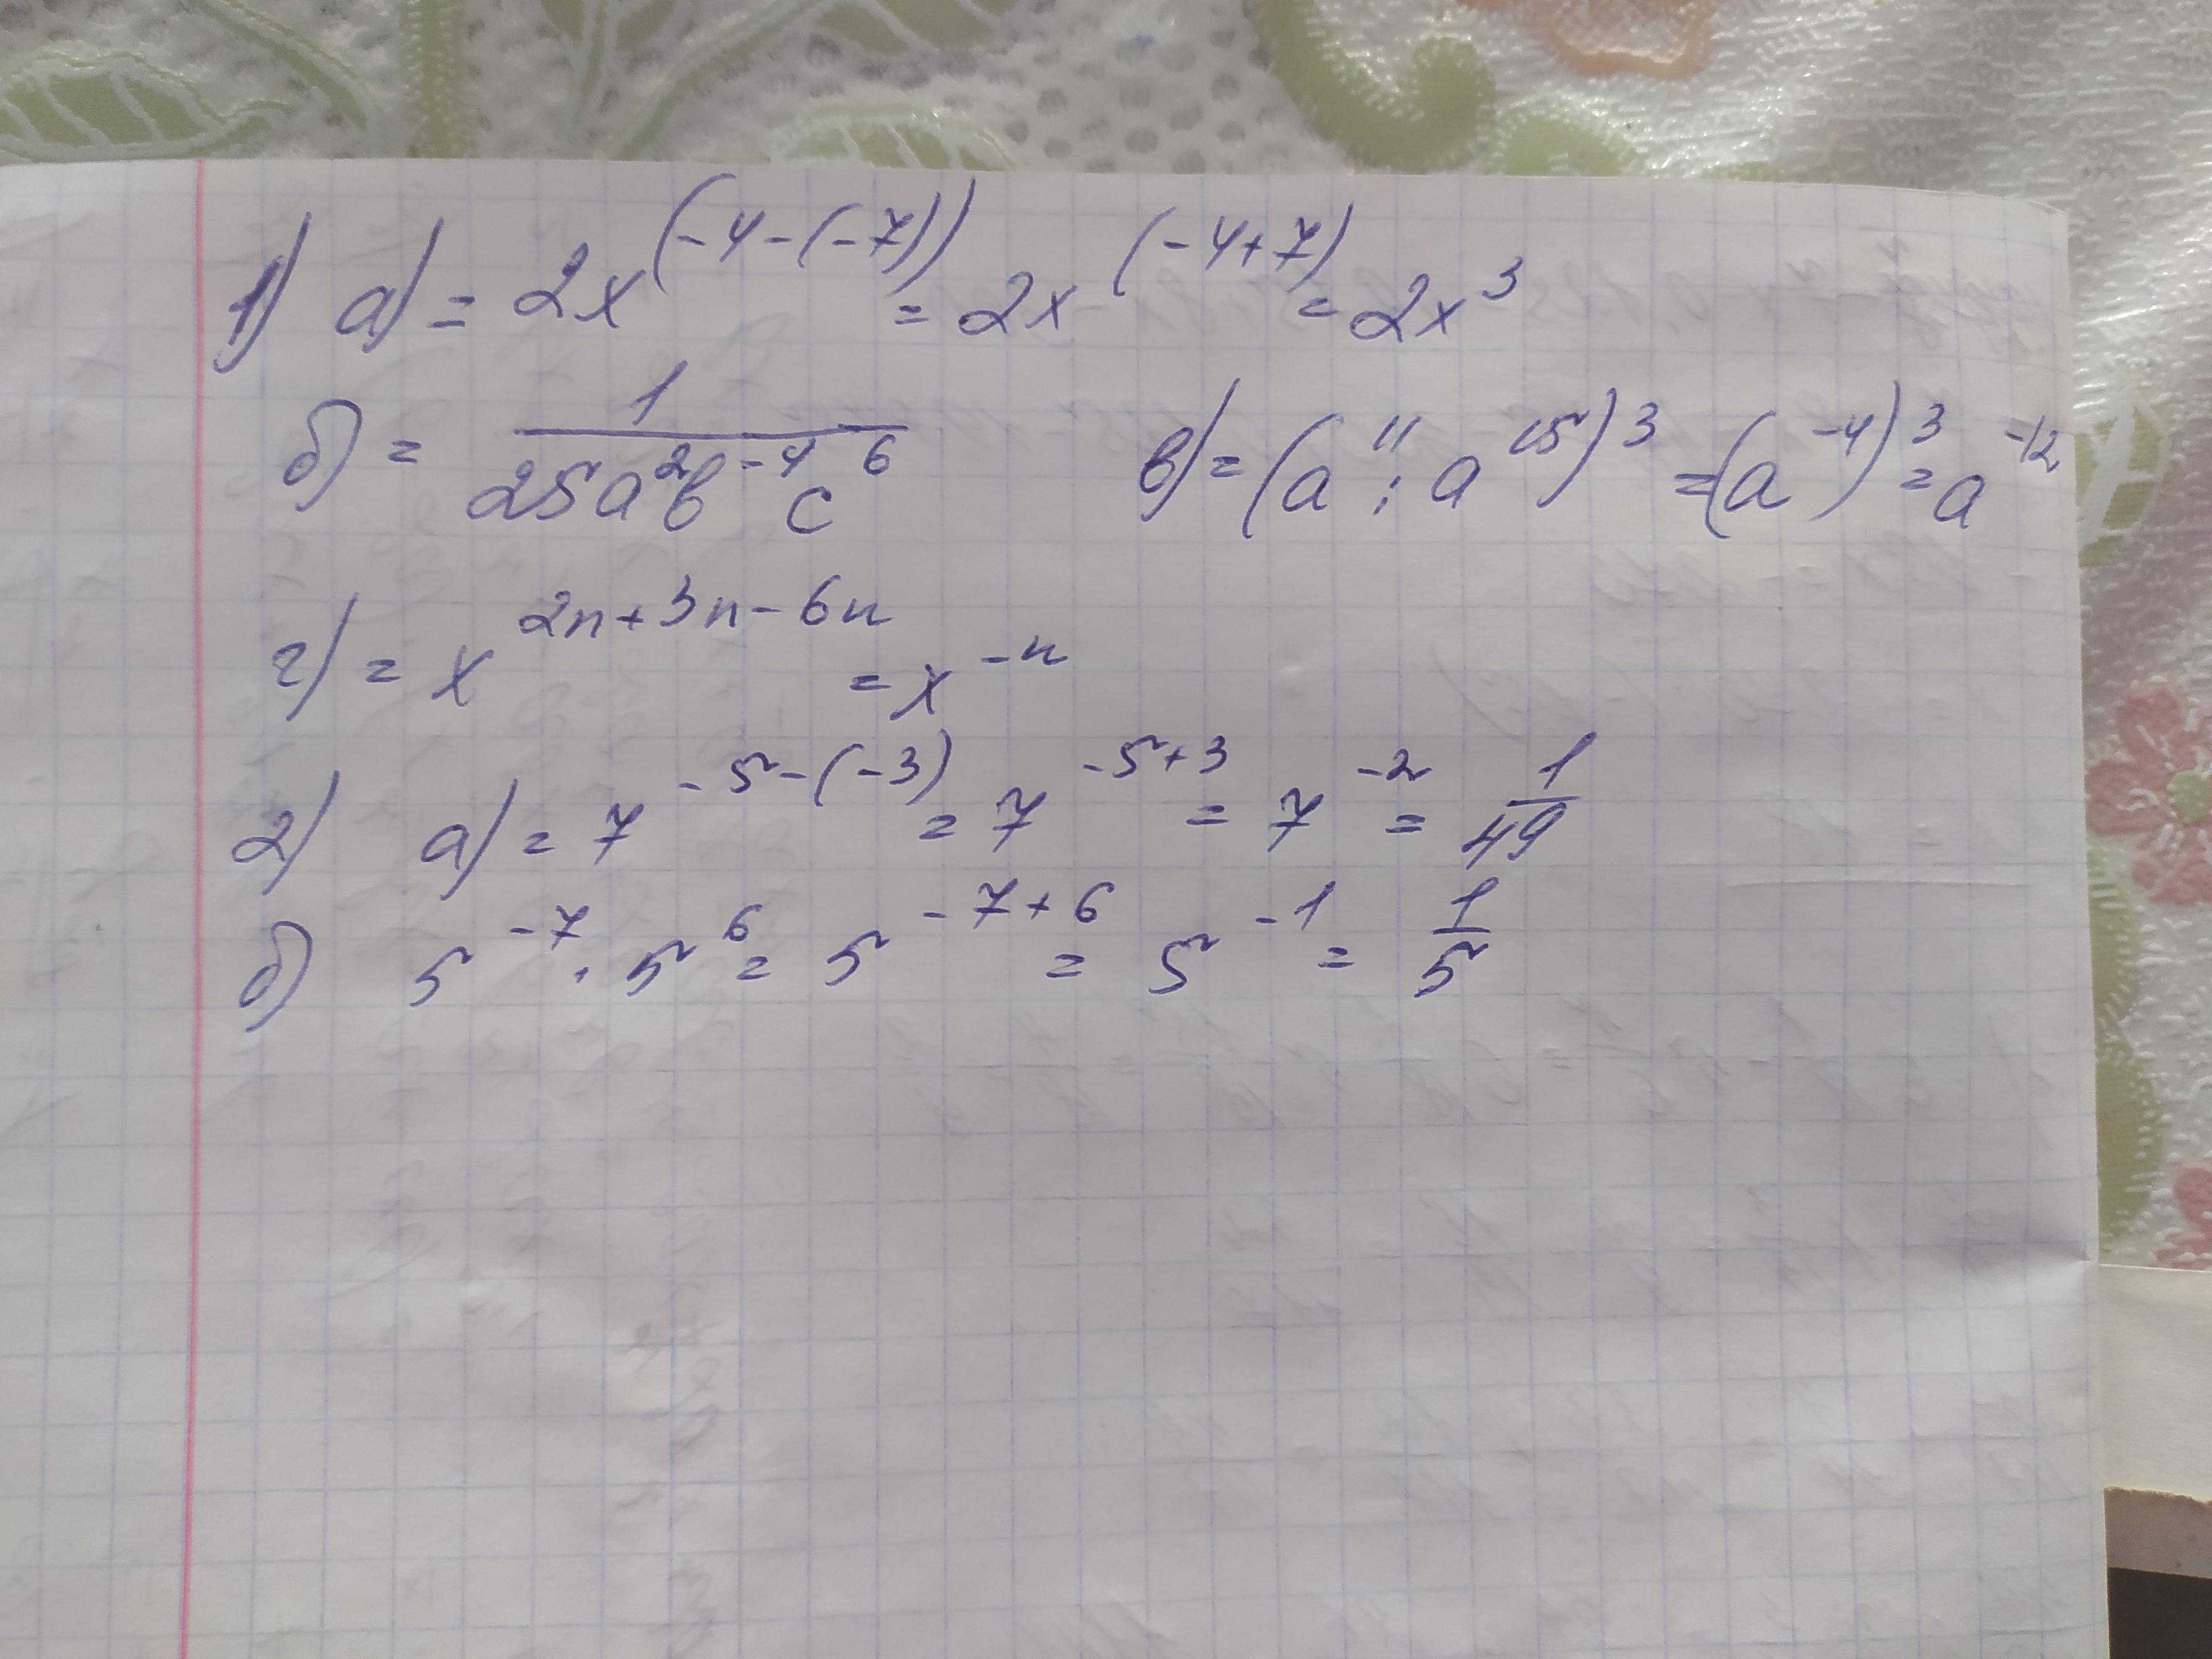 1) а) = 2x^(-4-(-7)) = 2x^(-4+7) = 2x^3
б) = 1/(25a^2b^-4c^6) в) = (a^11 : a^15)^3 = (a^-4)^3 = a^-12
г) = x^(2n+3n-6n) = x^-n
2) а) = 7^(-5-(-3)) = 7^(-5+3) = 7^-2 = 1/49
б) 5^-7 · 5^6 = 5^(-7+6) = 5^-1 = 1/5